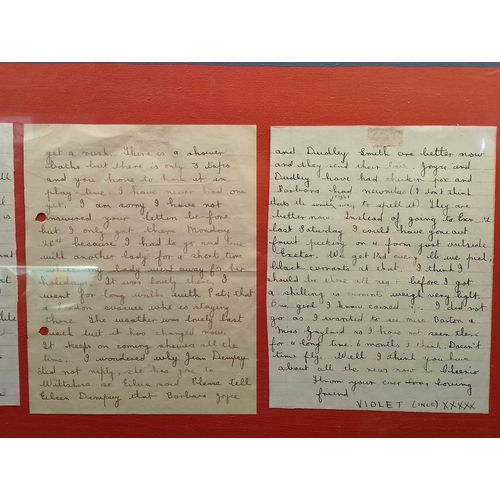 get a wash. There is a shower
baths but there is only 3 taps
and you have to have it in
play time I have never had one
yet. I am sorry I have not
answered your letter be-fore
but I only got them Monday
28th because I had to go and live
with another lady for a short time
my lady went away for her
holidays. It was lovely there I
went for long walks with Pat; that
a London evacuee who is staying
there. The weather was lovely last
week but it has changed now.
It keeps on coming showers all the
time. I wondered why Jean Dempsey
did not reply, she has gone to
Wiltshire so Eileen said Please tell
Eileen Dempsey that Barbara Joyce
and Dudley Smith are better now
and they send their love. Joyce and
Dudley have had chicken pox and
Barbara had newmonia (I don't think
thats the right way to spell it). They are
better now. Instead of going to
last Saturday I could have gone out
fruit picking on a farm just outside
Exeter. We get 1½d every lb we pick,
black currants at that. I think I
should be there all day before I got
a shilling as currants weigh very light.
One girl I know earned I did not
go as I wanted to see miss Barton &
Miss Gayland as I have not seen them
for a long time. 6 months I think. Doesn't
time fly. Well I think you have
about all the news now so cheerio
From your ever loving
friend
VIOLET (INCE) XXXXX